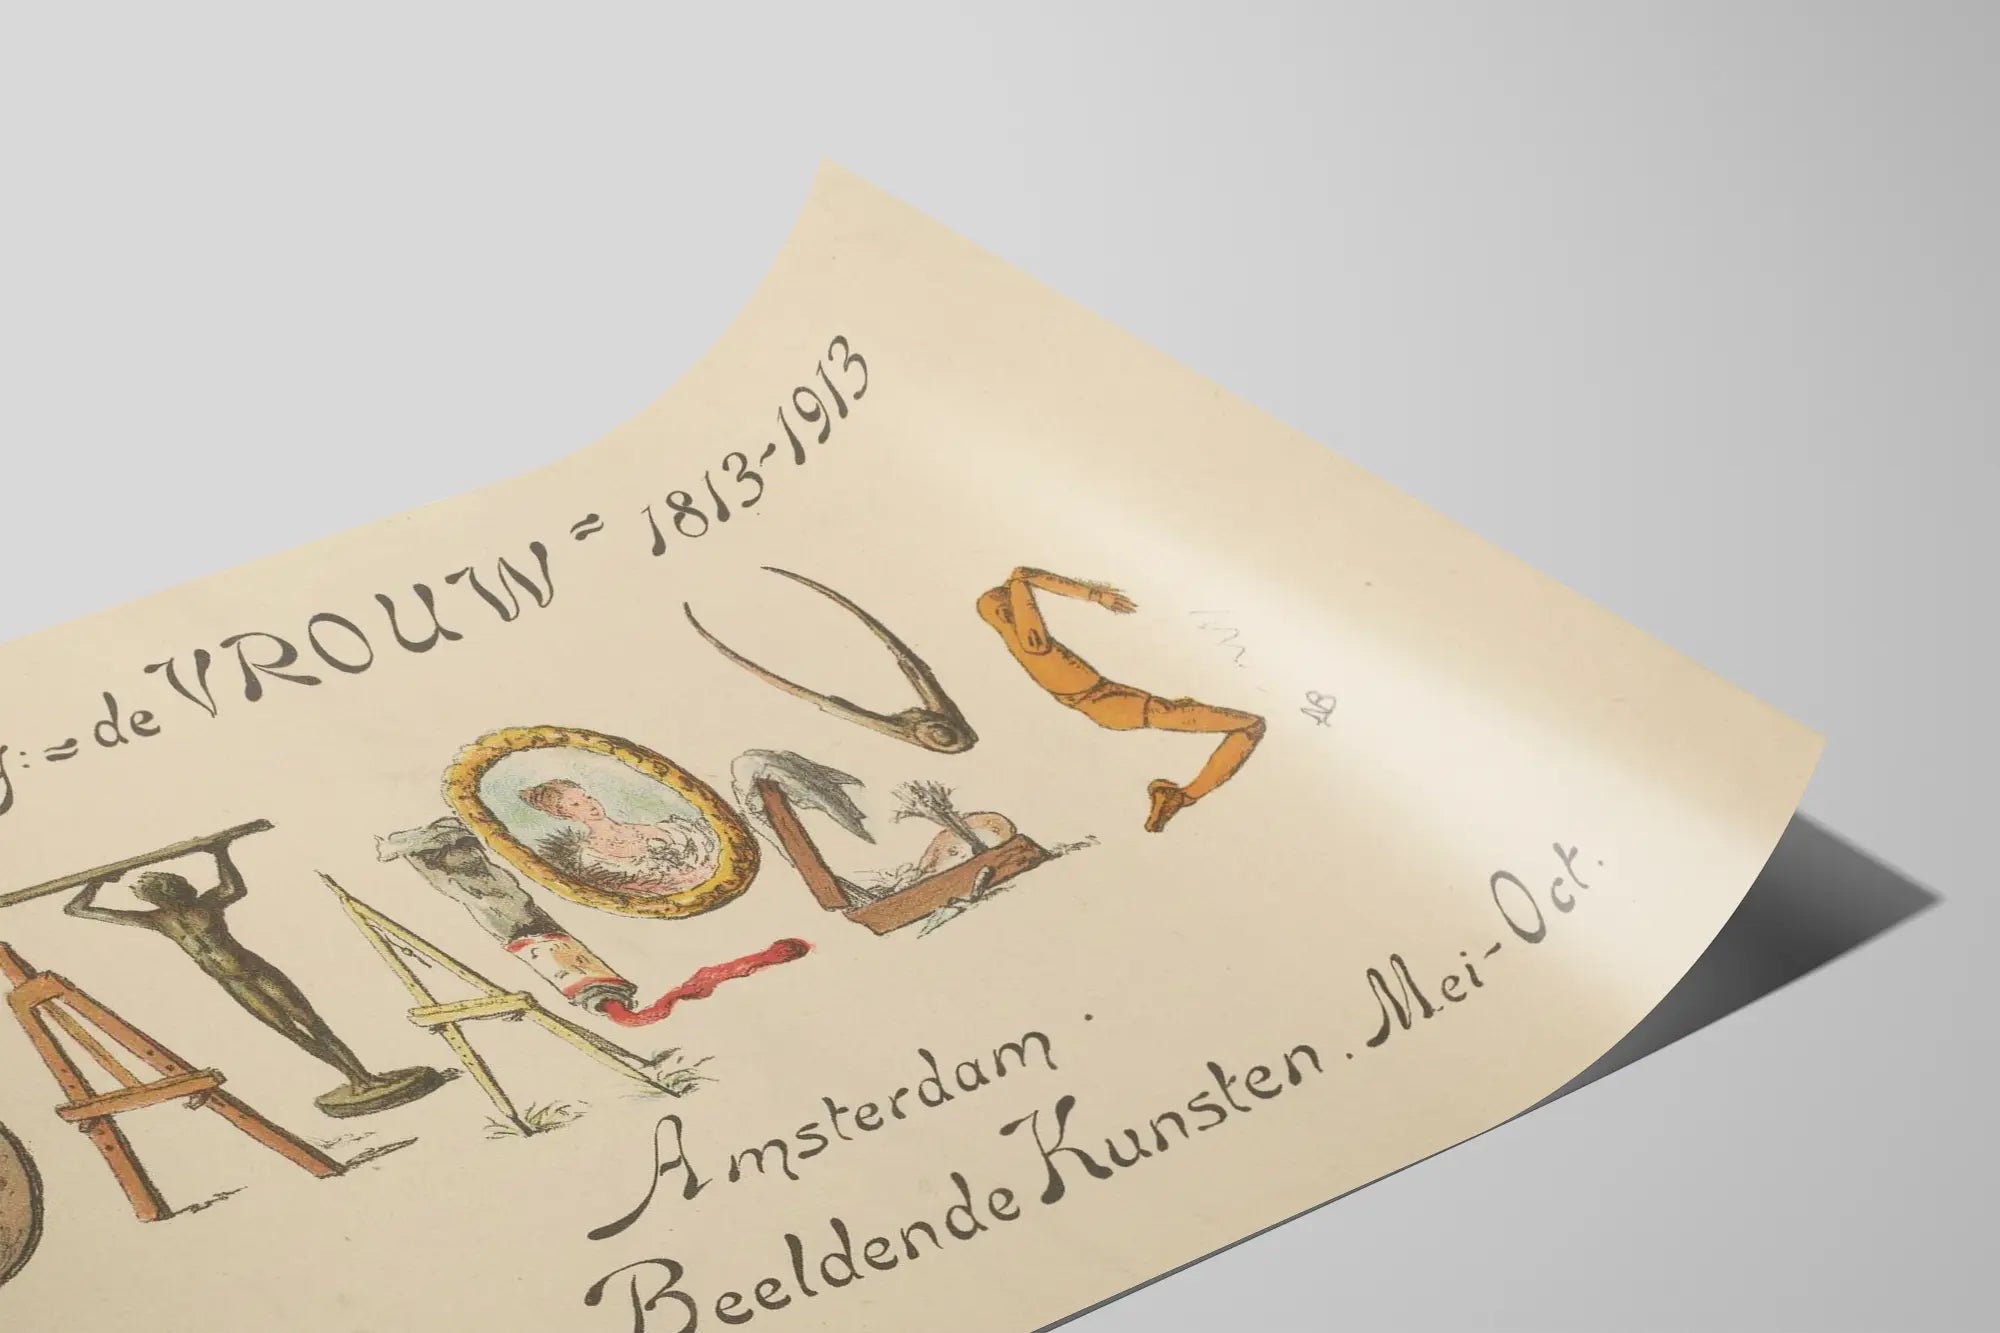 : = de VROUW = 1813-1913
ATALOGUS
AB
Amsterdam.
Beeldende Kunsten. Mei-Oct.